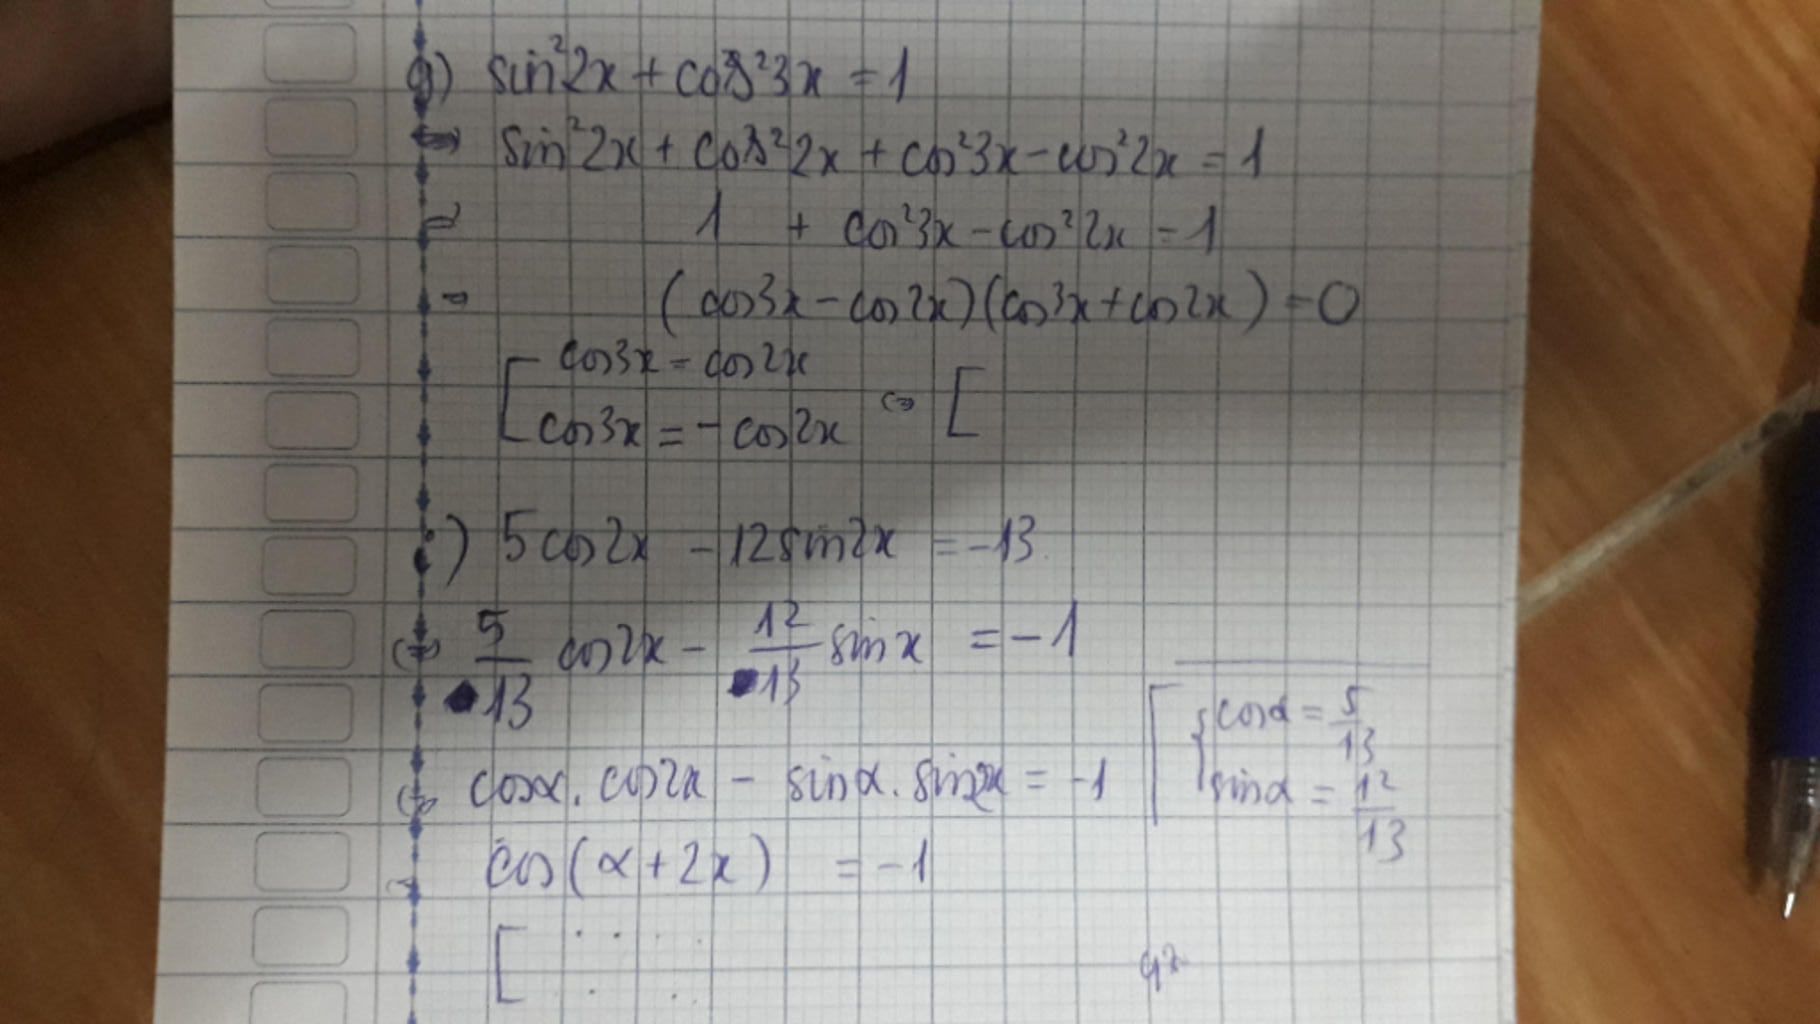 g) sin²2x + cos²3x = 1
⇔ sin²2x + cos²2x + cos²3x - cos²2x = 1
⇔ 1 + cos²3x - cos²2x = 1
⇔ (cos3x - cos2x)(cos3x + cos2x) = 0
[ cos3x = cos2x
cos3x = - cos2x ⇔ [
i) 5cos2x - 12sin2x = -13
⇔ 5/13 cos2x - 12/13 sinx = -1
⇔ cosα . cos2x - sinα . sin2x = -1 [ { cosα = 5/13
sinα = 12/13
cos(α + 2x) = -1
[ . . . .
. . .